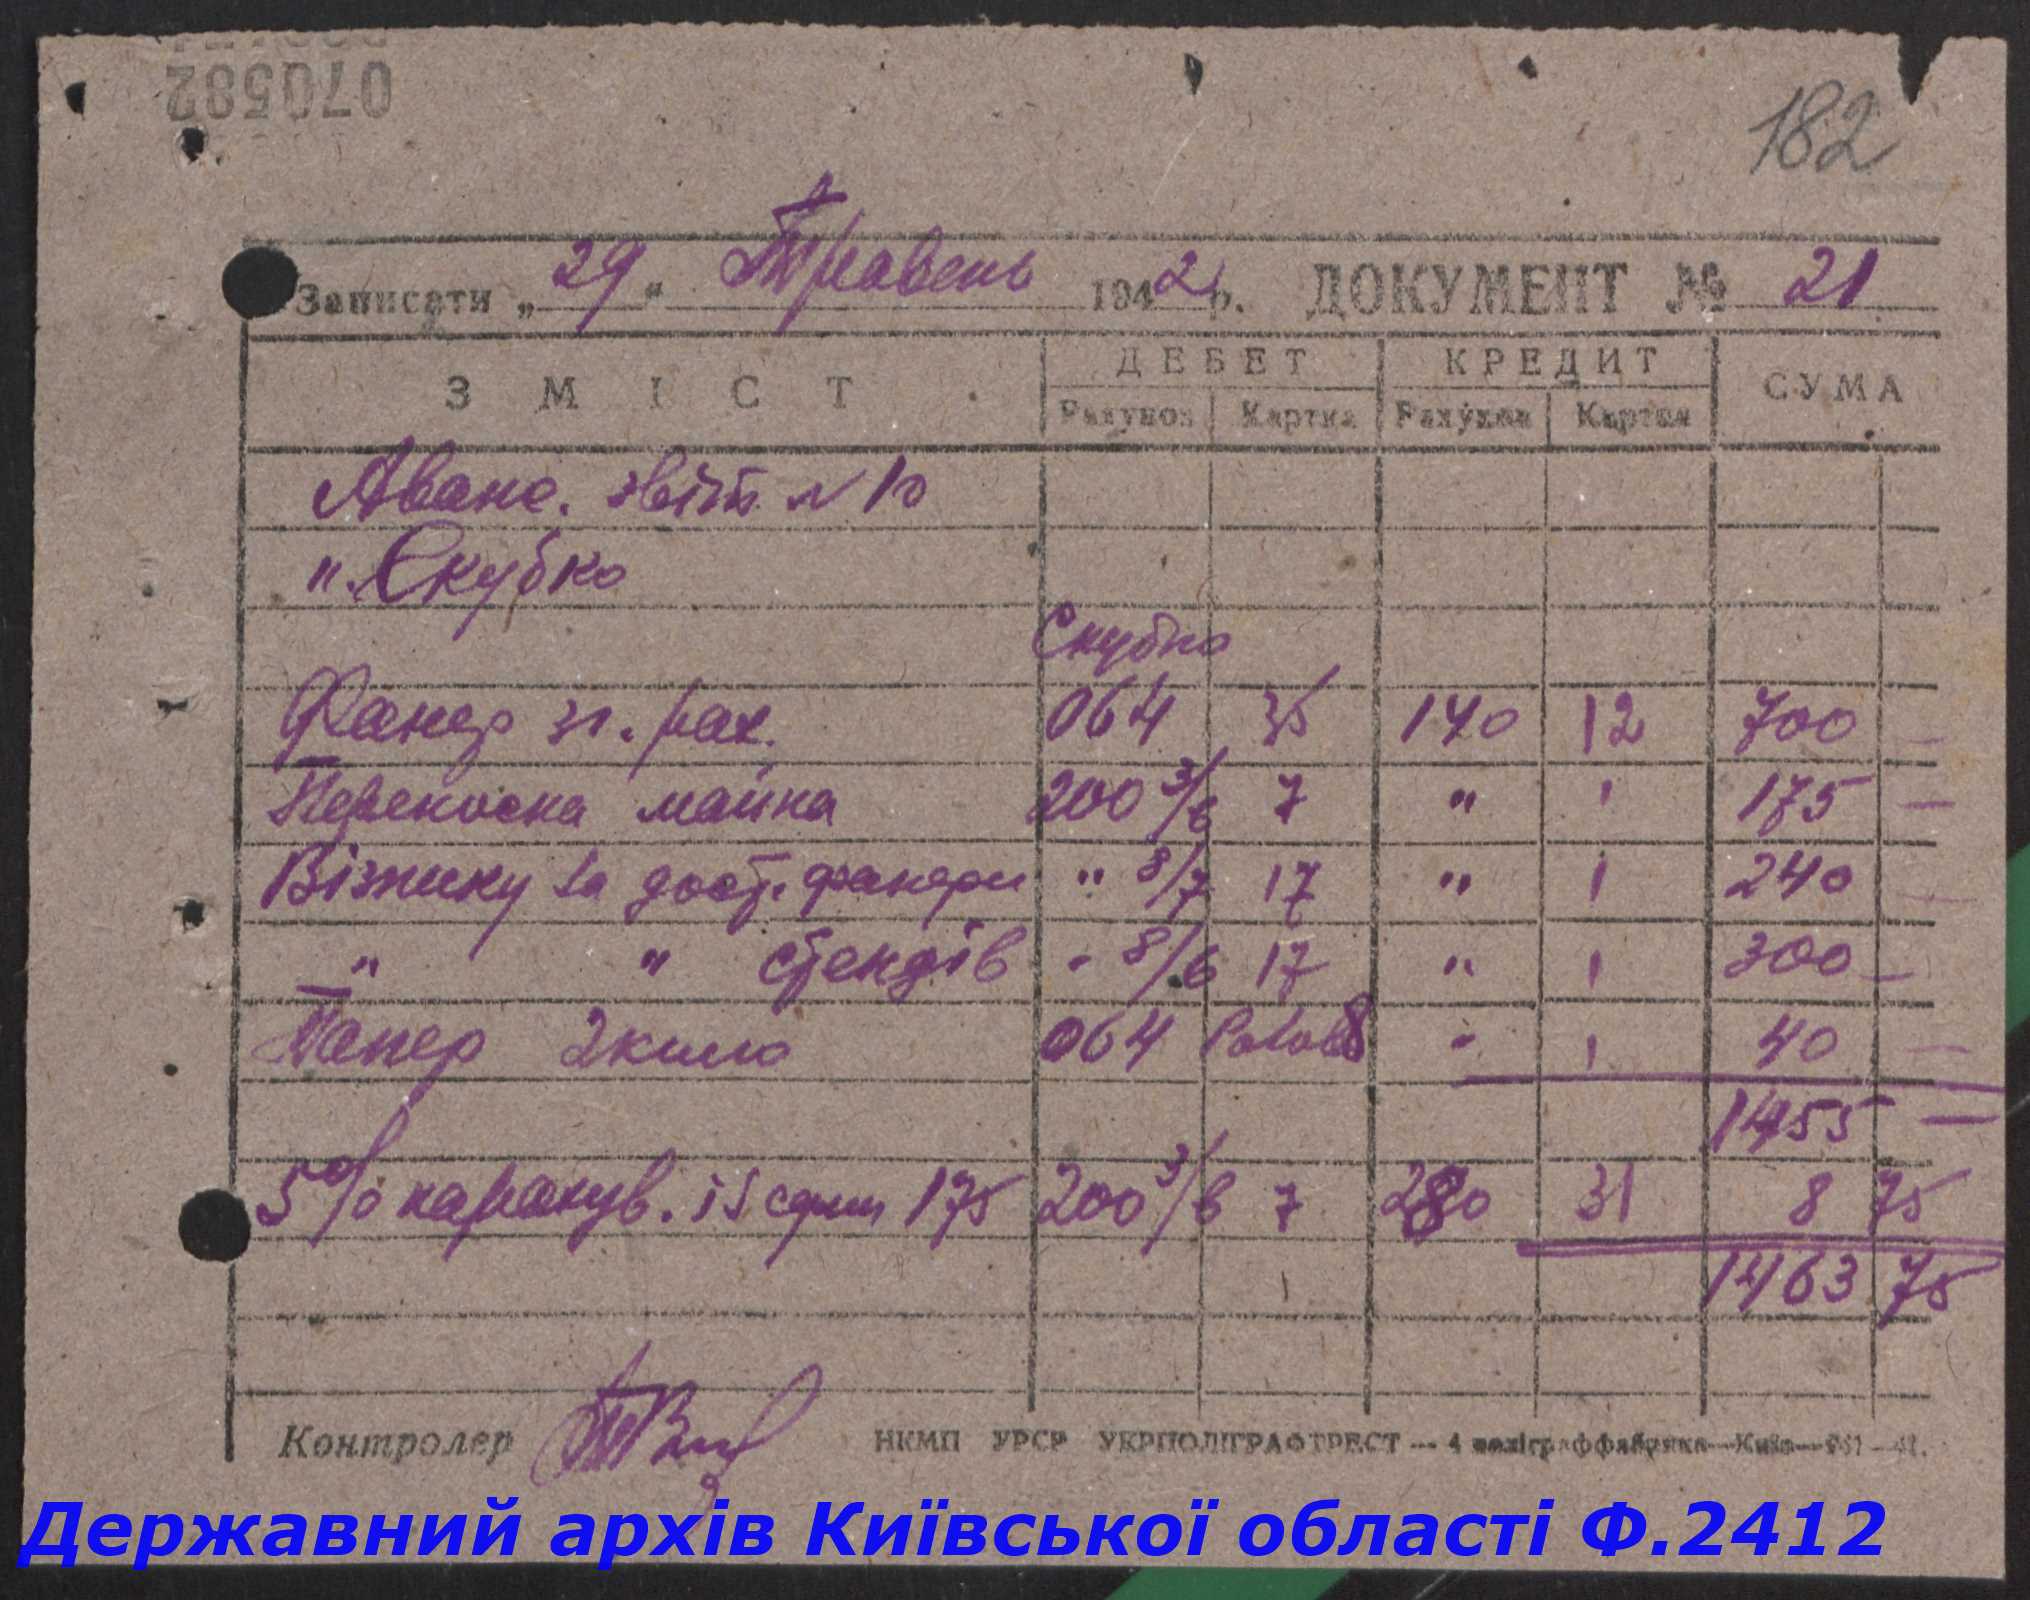 070582
182
Записати „29" Травень 1942 р. ДОКУМЕНТ № 21
ЗМІСТ ДЕБЕТ КРЕДИТ СУМА
Рахунок Картка Рахунок Картка
Аванс. звіт N 10
" Скубко
Скубко
Фанер зг. рах. 064 35 140 12 700 —
Переноска майна 200 3/6 7 " ' 175 —
Візнику за дост. фанери " 8/7 17 " ' 240 —
" " стендів - 8/6 17 " ' 300 —
Папер 2 кило 064 " ' 40 —
1455 —
5% нарахув. із суми 175 200 3/6 7 280 31 8 75
1463 75
Контролер
НКМП УРСР УКРПОЛІГРАФТРЕСТ — 4 поліграффабрика — Київ
Державний архів Київської області Ф.2412